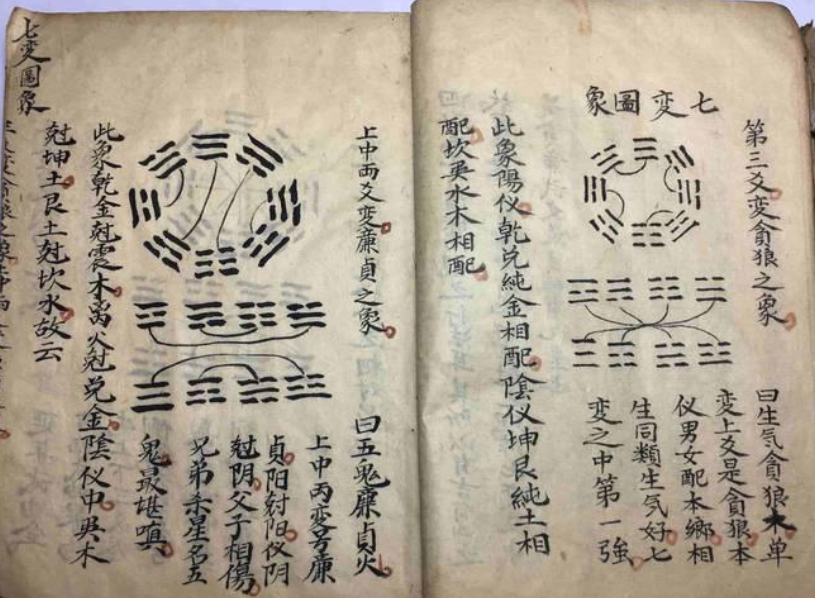 第三爻變貪狼之象
七變圖象
曰生气貪狼木单
变上爻是貪狼本
仪男女配本鄉相
生同類生気好七
变之中第一強
此象陽仪乾兑純金相配陰仪坤艮純土相
配坎巽水木相配
上中两爻变廉貞之象
曰五鬼廉貞火
上中丙変号廉
貞阳尅阳仪阴
尅阴父子相傷
兄弟杀星名五
鬼最堪嗔
此象乾金尅震木离火尅兑金陰仪中巽木
尅坤土艮土尅坎水故云
七变圖象